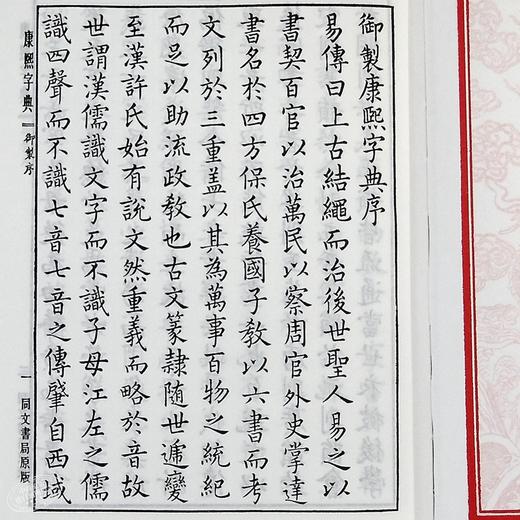 御製康熙字典序
易傳曰上古結繩而治後世聖人易之以
書契百官以治萬民以察周官外史掌達
書名於四方保氏養國子教以六書而考
文列於三重蓋以其為萬事百物之統紀
而足以助流政教也古文篆隸隨世遞變
至漢許氏始有說文然重義而略於音故
世謂漢儒識文字而不識子母江左之儒
識四聲而不識七音七音之傳肇自西域
康熙字典 御製序 一 同文書局原版